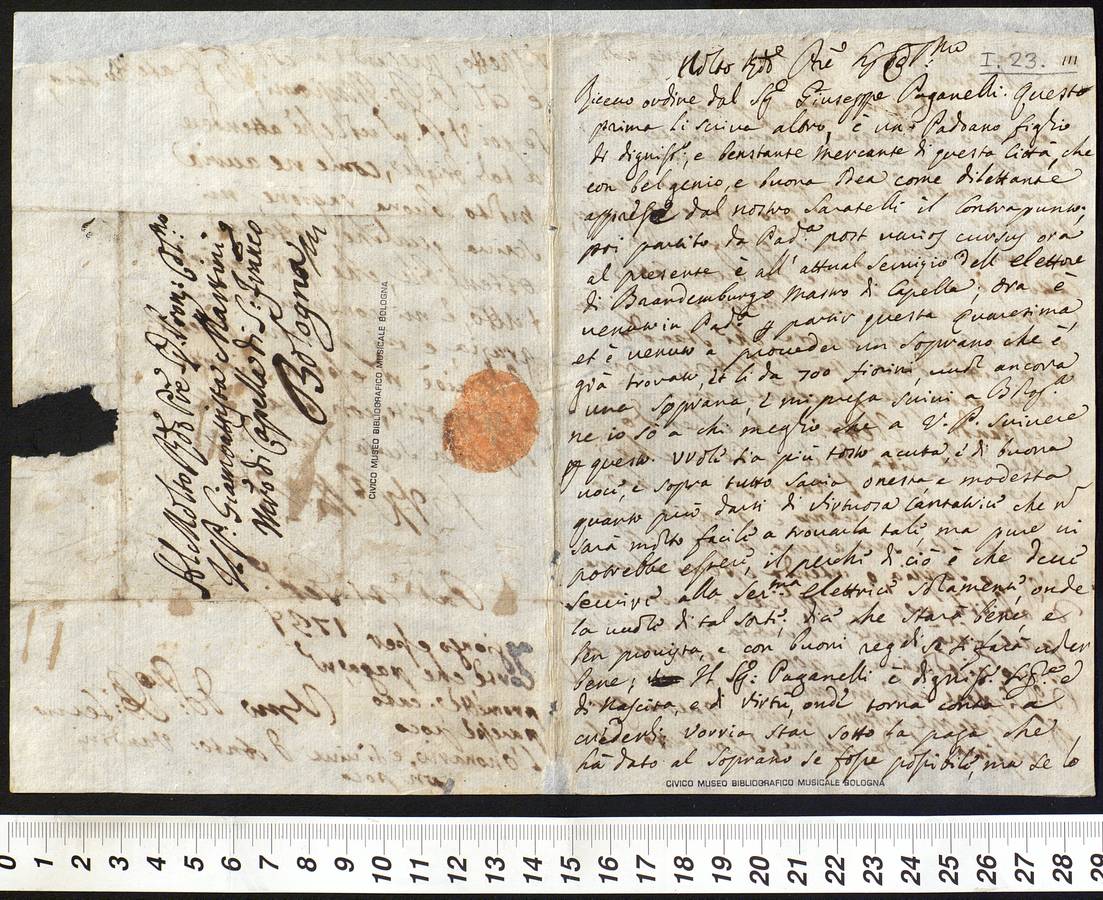 Molto Rdo Pre
I. 23.
111
Riceuo ordine dal Sigr Giuseppe Paganelli. Questo
prima li scriua altro, è un Padoano figlio
di dignissi:, e benstante Mercante di questa Città, che
con bel genio, e buona Idea come dilettante
apprese dal nostro Saratelli il Contrapunto;
poi partito da Pada post varios cursus ora
al presente è all' attual Seruigio dell Elettore
di Braandemburgo Mastro di Capella; Ora è
venuto in Pada p partir questa Quaresima,
et è venuto a proueder un Soprano che è
già trouato, et li da 700 fiorini, vuole ancora
una Soprana, e mi prega scriui a Bloga
ne io sò a chi meglio che a V. P. scriuere
p questo. Vuole sia più tosto acuta e di buona
voce, e sopra tutto sauia onesta e modesta
quanto può darsi di virtuosa Cantatrice che n
sarà molto facile a trouarla tale ma pure ui
potrebbe essere, il perche di ciò è che deue
seruire alla Serma Elettrice solamente onde
la vuole di tal sorte; dice che starà bene, e
ben prouista, e con buoni regali si farà ueder
bene; Il Sigr Paganelli è dignisso sigre e
di Nascita, e di virtù, onde torna conto a
crederli. Vorria star sotto la paga che
hà dato al Soprano se fosse possibile, ma se lo
CIVICO MUSEO BIBLIOGRAFICO MUSICALE BOLOGNA
Al Molto Rdo Pre
Giambattista Martini
Mro di Capella di S. Franco
Bologna
CIVICO MUSEO BIBLIOGRAFICO MUSICALE BOLOGNA
0 1 2 3 4 5 6 7 8 9 10 11 12 13 14 15 16 17 18 19 20 21 22 23 24 25 26 27 28 29